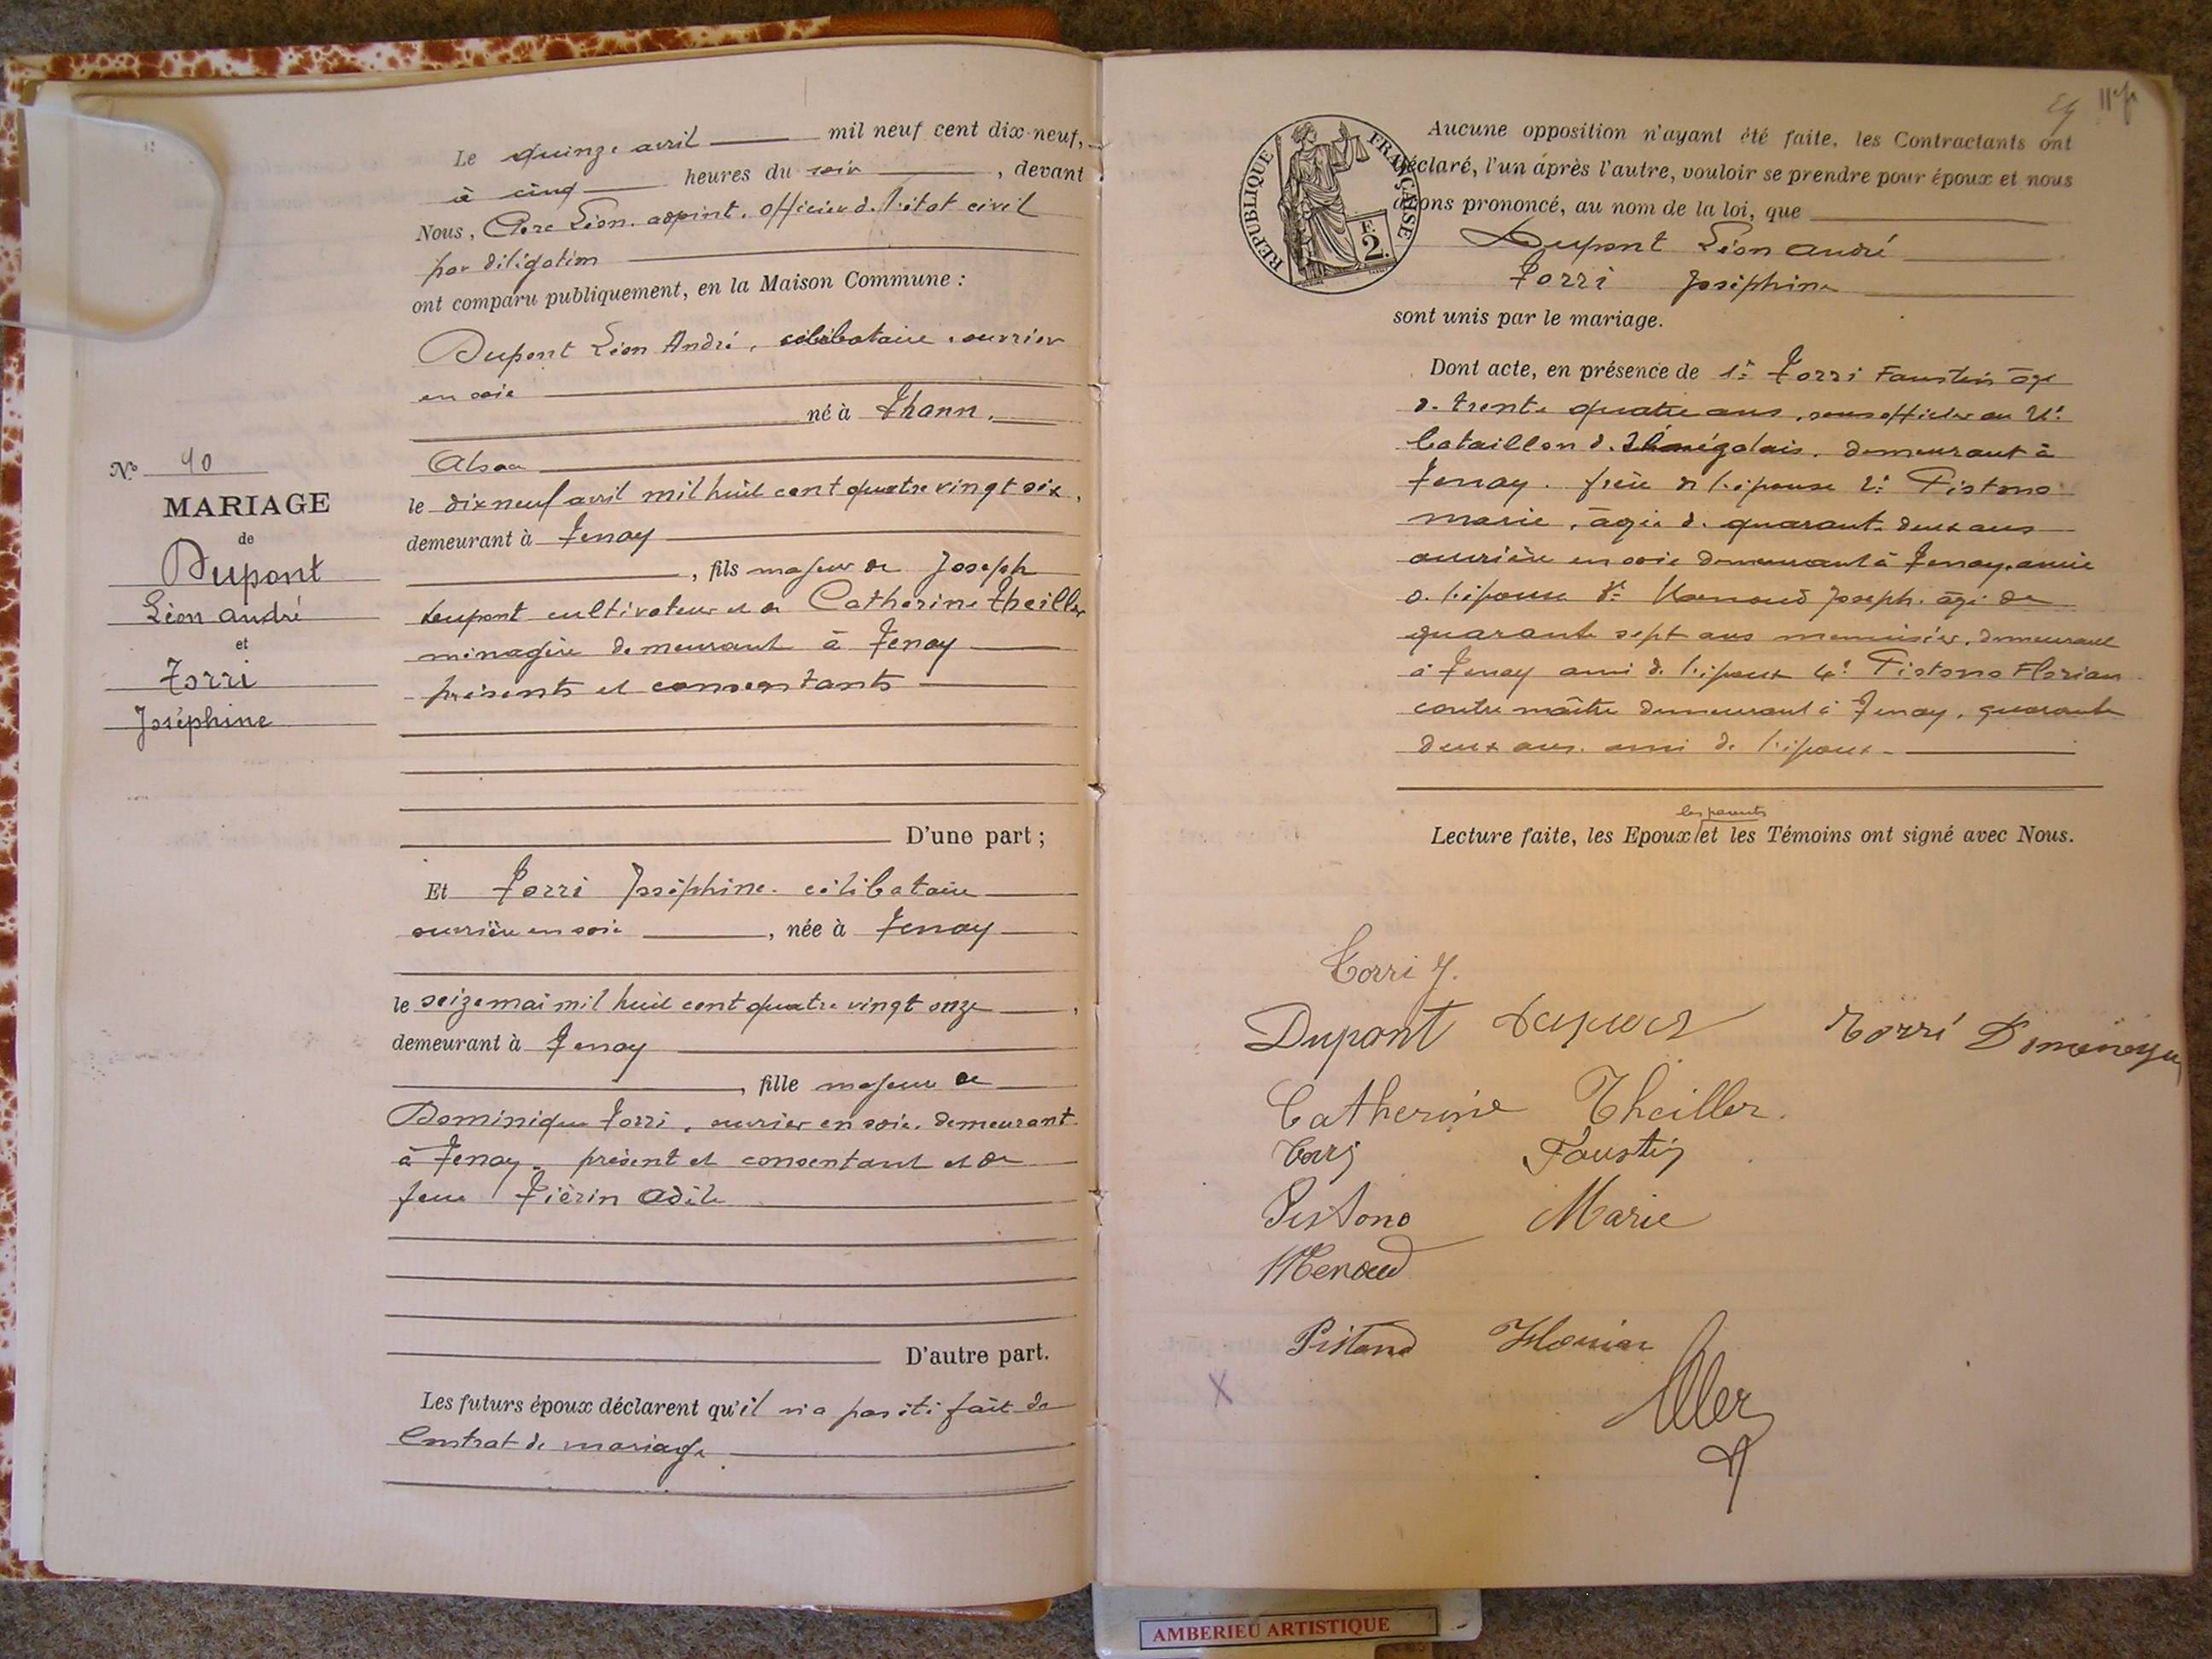 Le quinze avril mil neuf cent dix-neuf,
à cinq heures du soir, devant
Nous, Léon. adjoint. officier de l'état civil
par délégation
ont comparu publiquement, en la Maison Commune :
Dupont Léon André, célibataire, ouvrier
en soie
né à Thann,
Alsace
le dix neuf avril mil huit cent quatre vingt six,
demeurant à Tenay
, fils majeur de Joseph
Dupont cultivateur et de Catherine Theiller
ménagère demeurant à Tenay
présents et consentants
D'une part ;
N°
MARIAGE
de
Dupont
Léon André
et
Torri
Joséphine
Et Torri Joséphine. célibataire
ouvrière en soie, née à Tenay
le seize mai mil huit cent quatre vingt onze,
demeurant à Tenay
, fille majeure de
Dominique Torri, ouvrier en soie. demeurant
à Tenay. présent et consentant et de
feue Adèle
D'autre part.
Les futurs époux déclarent qu'il n'a pas été fait de
Contrat de mariage
RÉPUBLIQUE FRANÇAISE
F.
2.
Aucune opposition n'ayant été faite, les Contractants ont
déclaré, l'un après l'autre, vouloir se prendre pour époux et nous
avons prononcé, au nom de la loi, que
Dupont Léon André
Torri Joséphine
sont unis par le mariage.
Dont acte, en présence de 1° Torri Faustin âgé
de trente quatre ans, sous officier au
bataillon de Sénégalais. demeurant à
Tenay. frère de l'épouse 2° Pistono
marie, âgée de quarante deux ans
ouvrière en soie demeurant à Tenay. amie
de l'épouse 3° Joseph. âgé de
quarante sept ans menuisier. demeurant
à Tenay ami de l'époux 4° Pistono Florian
contre maître demeurant à Tenay, quarante
deux ans. ami de l'époux
les parents
Lecture faite, les Epoux et les Témoins ont signé avec Nous.
Torri J.
Dupont Torri
Catherine Theiller.
Torri Faustin
Pistono Marie
Pistono Florian
AMBERIEU ARTISTIQUE